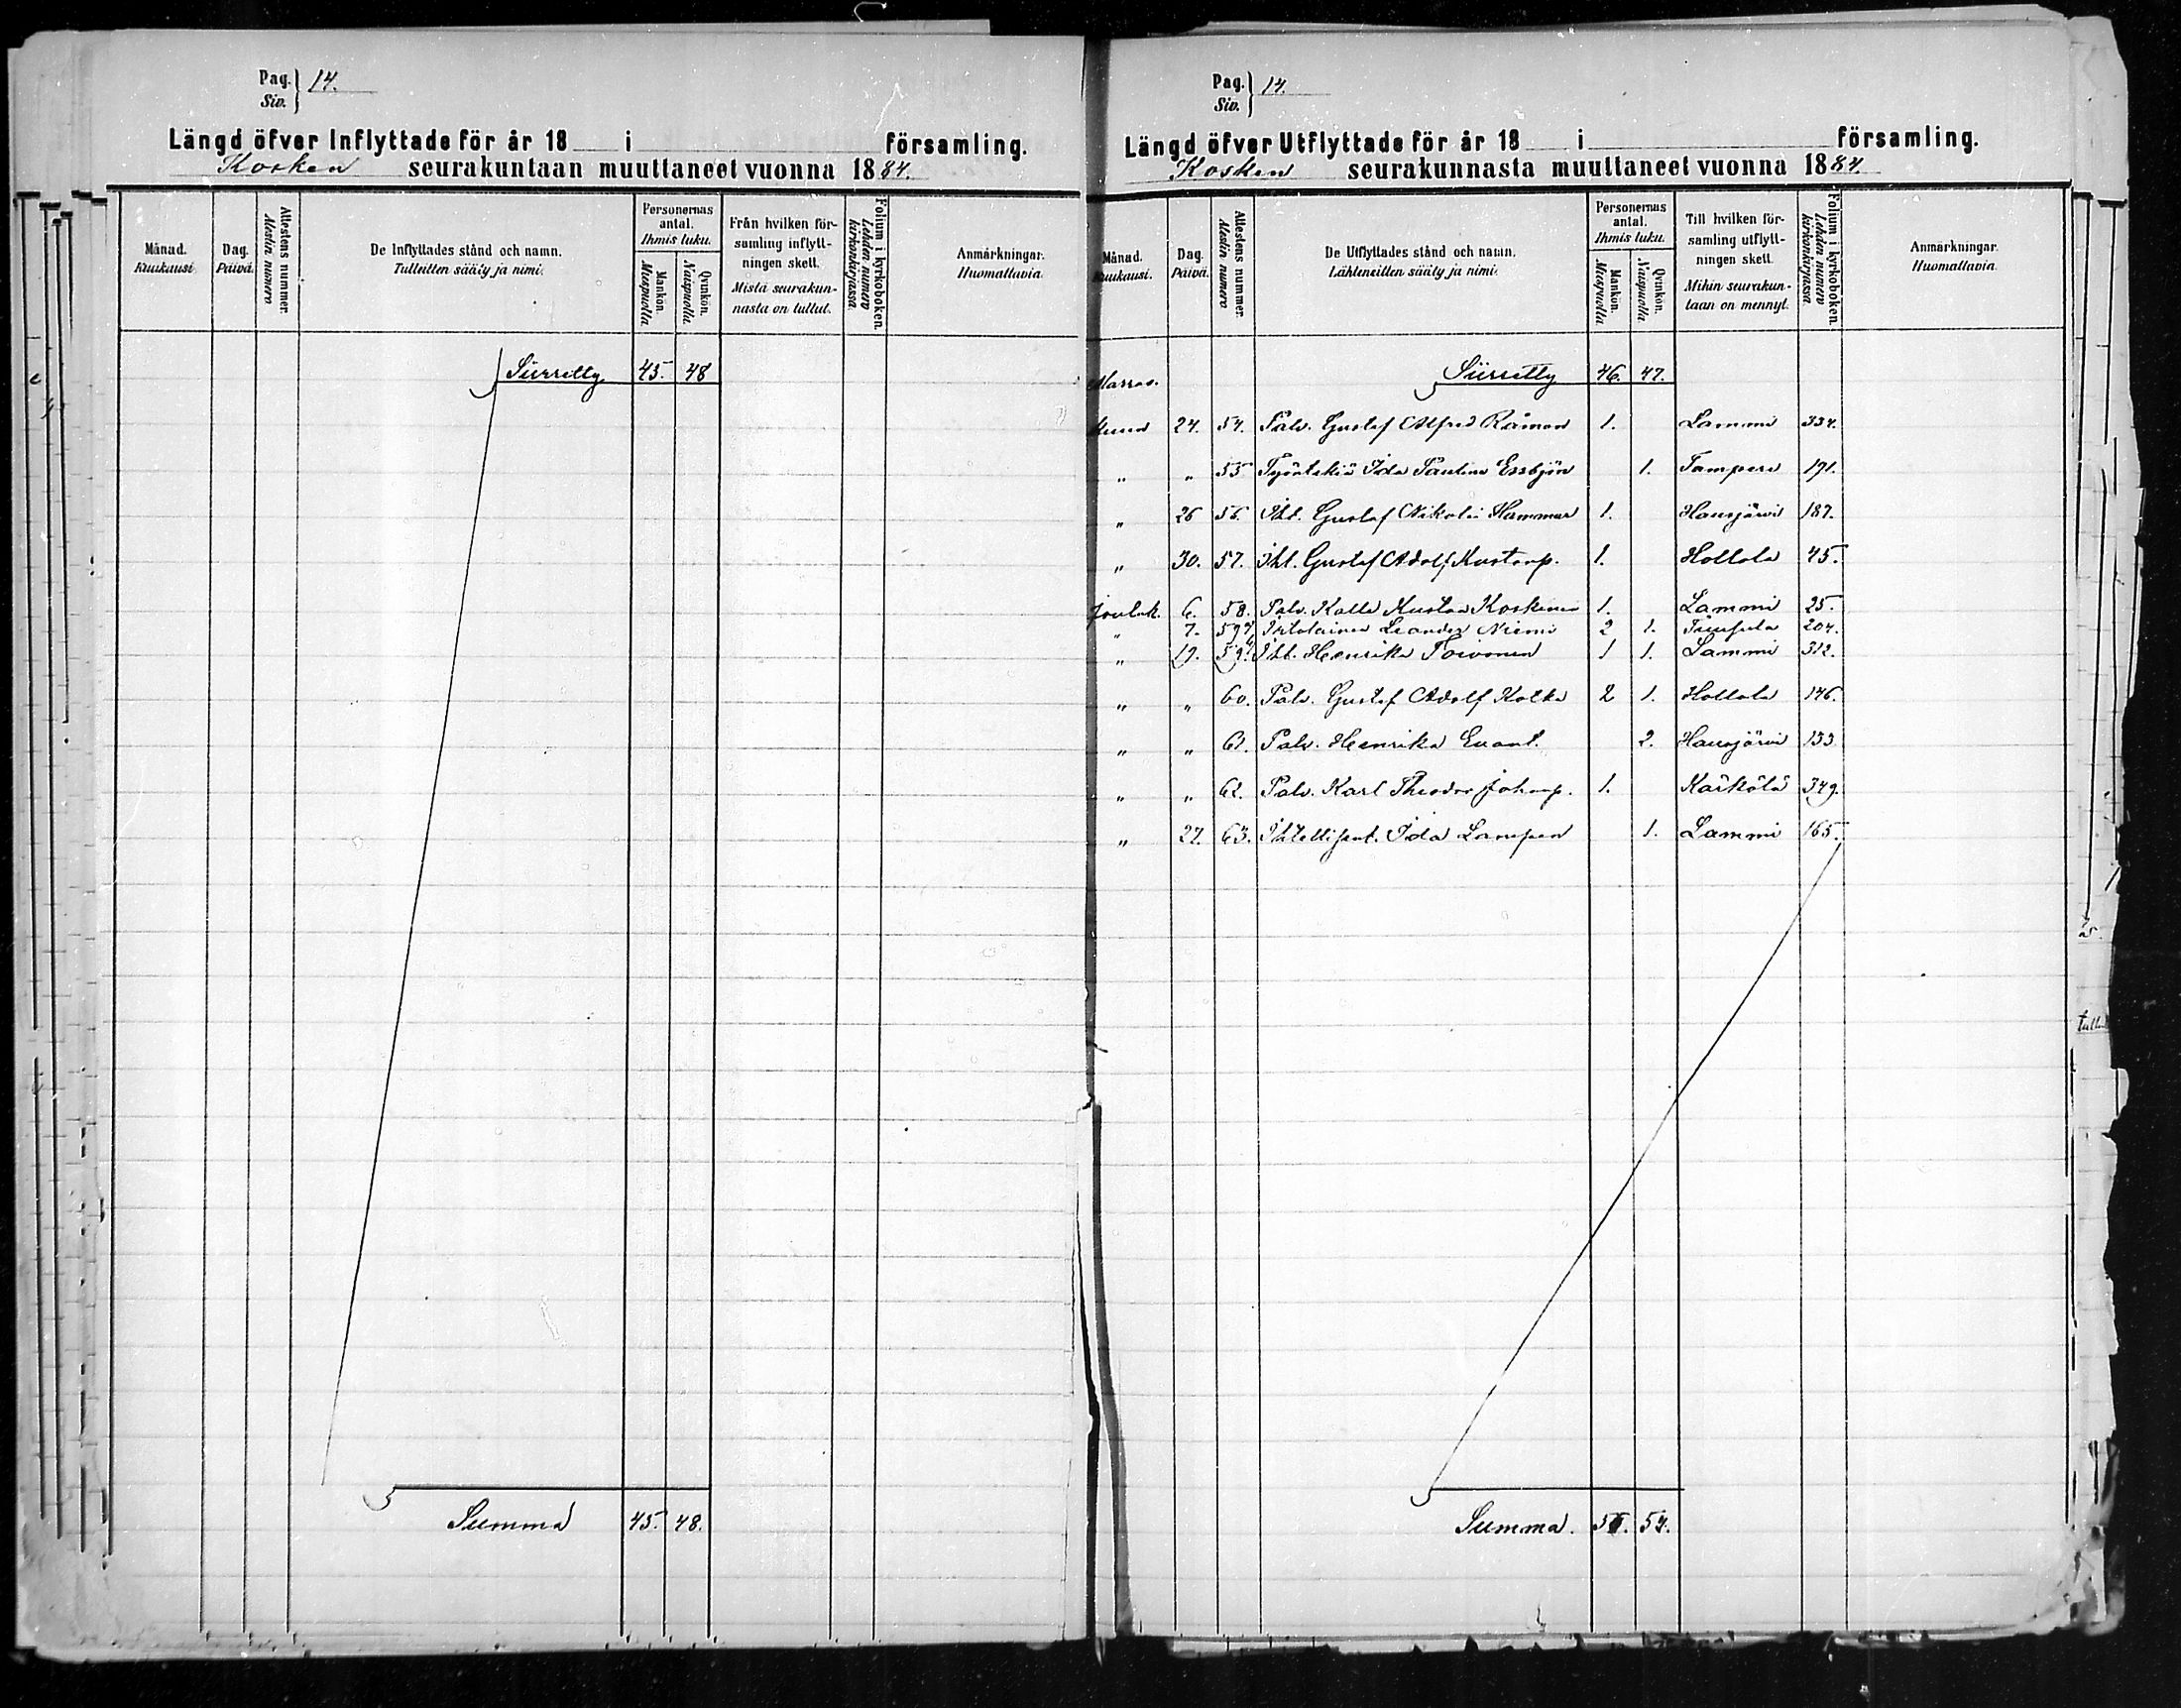 Pag. Siv. } 14.
Längd öfver Inflyttade för år 18 i församling.
Kosken seurakuntaan muuttaneet vuonna 1884.
Månad. Kuukausi. | Dag. Päivä. | Attestens nummer. Atestin numero | De Inflyttades stånd och namn. Tulleitten sääty ja nimi. | Personernas antal. Ihmis luku. Mankön. Miespuolia | Qvinkön. Naispuolia | Från hvilken församling inflyttningen skett. Mistä seurakunnasta on tullut. | Folium i kyrkoboken. Lehden numero kirkonkirjassa | Anmärkningar. Huomattavia
Siirretty 45. 48
Summa 45. 48.
Pag. Siv. } 14.
Längd öfver Utflyttade för år 18 i församling.
Kosken seurakunnasta muuttaneet vuonna 1884.
Månad. Kuukausi. | Dag. Päivä. | Attestens nummer. Atestin numero | De Utflyttades stånd och namn. Lähteneitten sääty ja nimi. | Personernas antal. Ihmis luku. Mankön. Miespuolia | Qvinkön. Naispuolia | Till hvilken församling utflyttningen skett. Mihin seurakuntaan on mennyt. | Folium i kyrkoboken. Lehden numero kirkonkirjassa | Anmärkningar. Huomattavia
Marras. Siirretty 46. 47.
24. 54. Palv. Gustaf Alfred Råman 1. Lammi 334.
" " 55 Ida Paulina Essbjön 1. Tampere 191.
" 26 56. Itl. Gustaf Nikolai Hammar 1. Hausjärvi 187.
" 30. 57. Itl. Gustaf Adolf Kustaap. 1. Hollola 45.
Jouluk. 6. 58. Palv. Kalle Kustaa Koskinen 1. Lammi 25.
" 7. 59 Itsolainen Leander Niemi 2 1. 204.
" 19. 59 Itl. Henrika Toivonen 1 1. Lammi 312.
" " 60. Palv. Gustaf Adolf Kotka 2 1. Hollola 146.
" " 61. Palv. Henrika Euant. 2. Hausjärvi 133.
" " 62. Palv. Karl Theodor Johanp. 1. Kärkölä 349.
" 27. 63. Ida Lampen 1. Lammi 165.
Summa. 54.